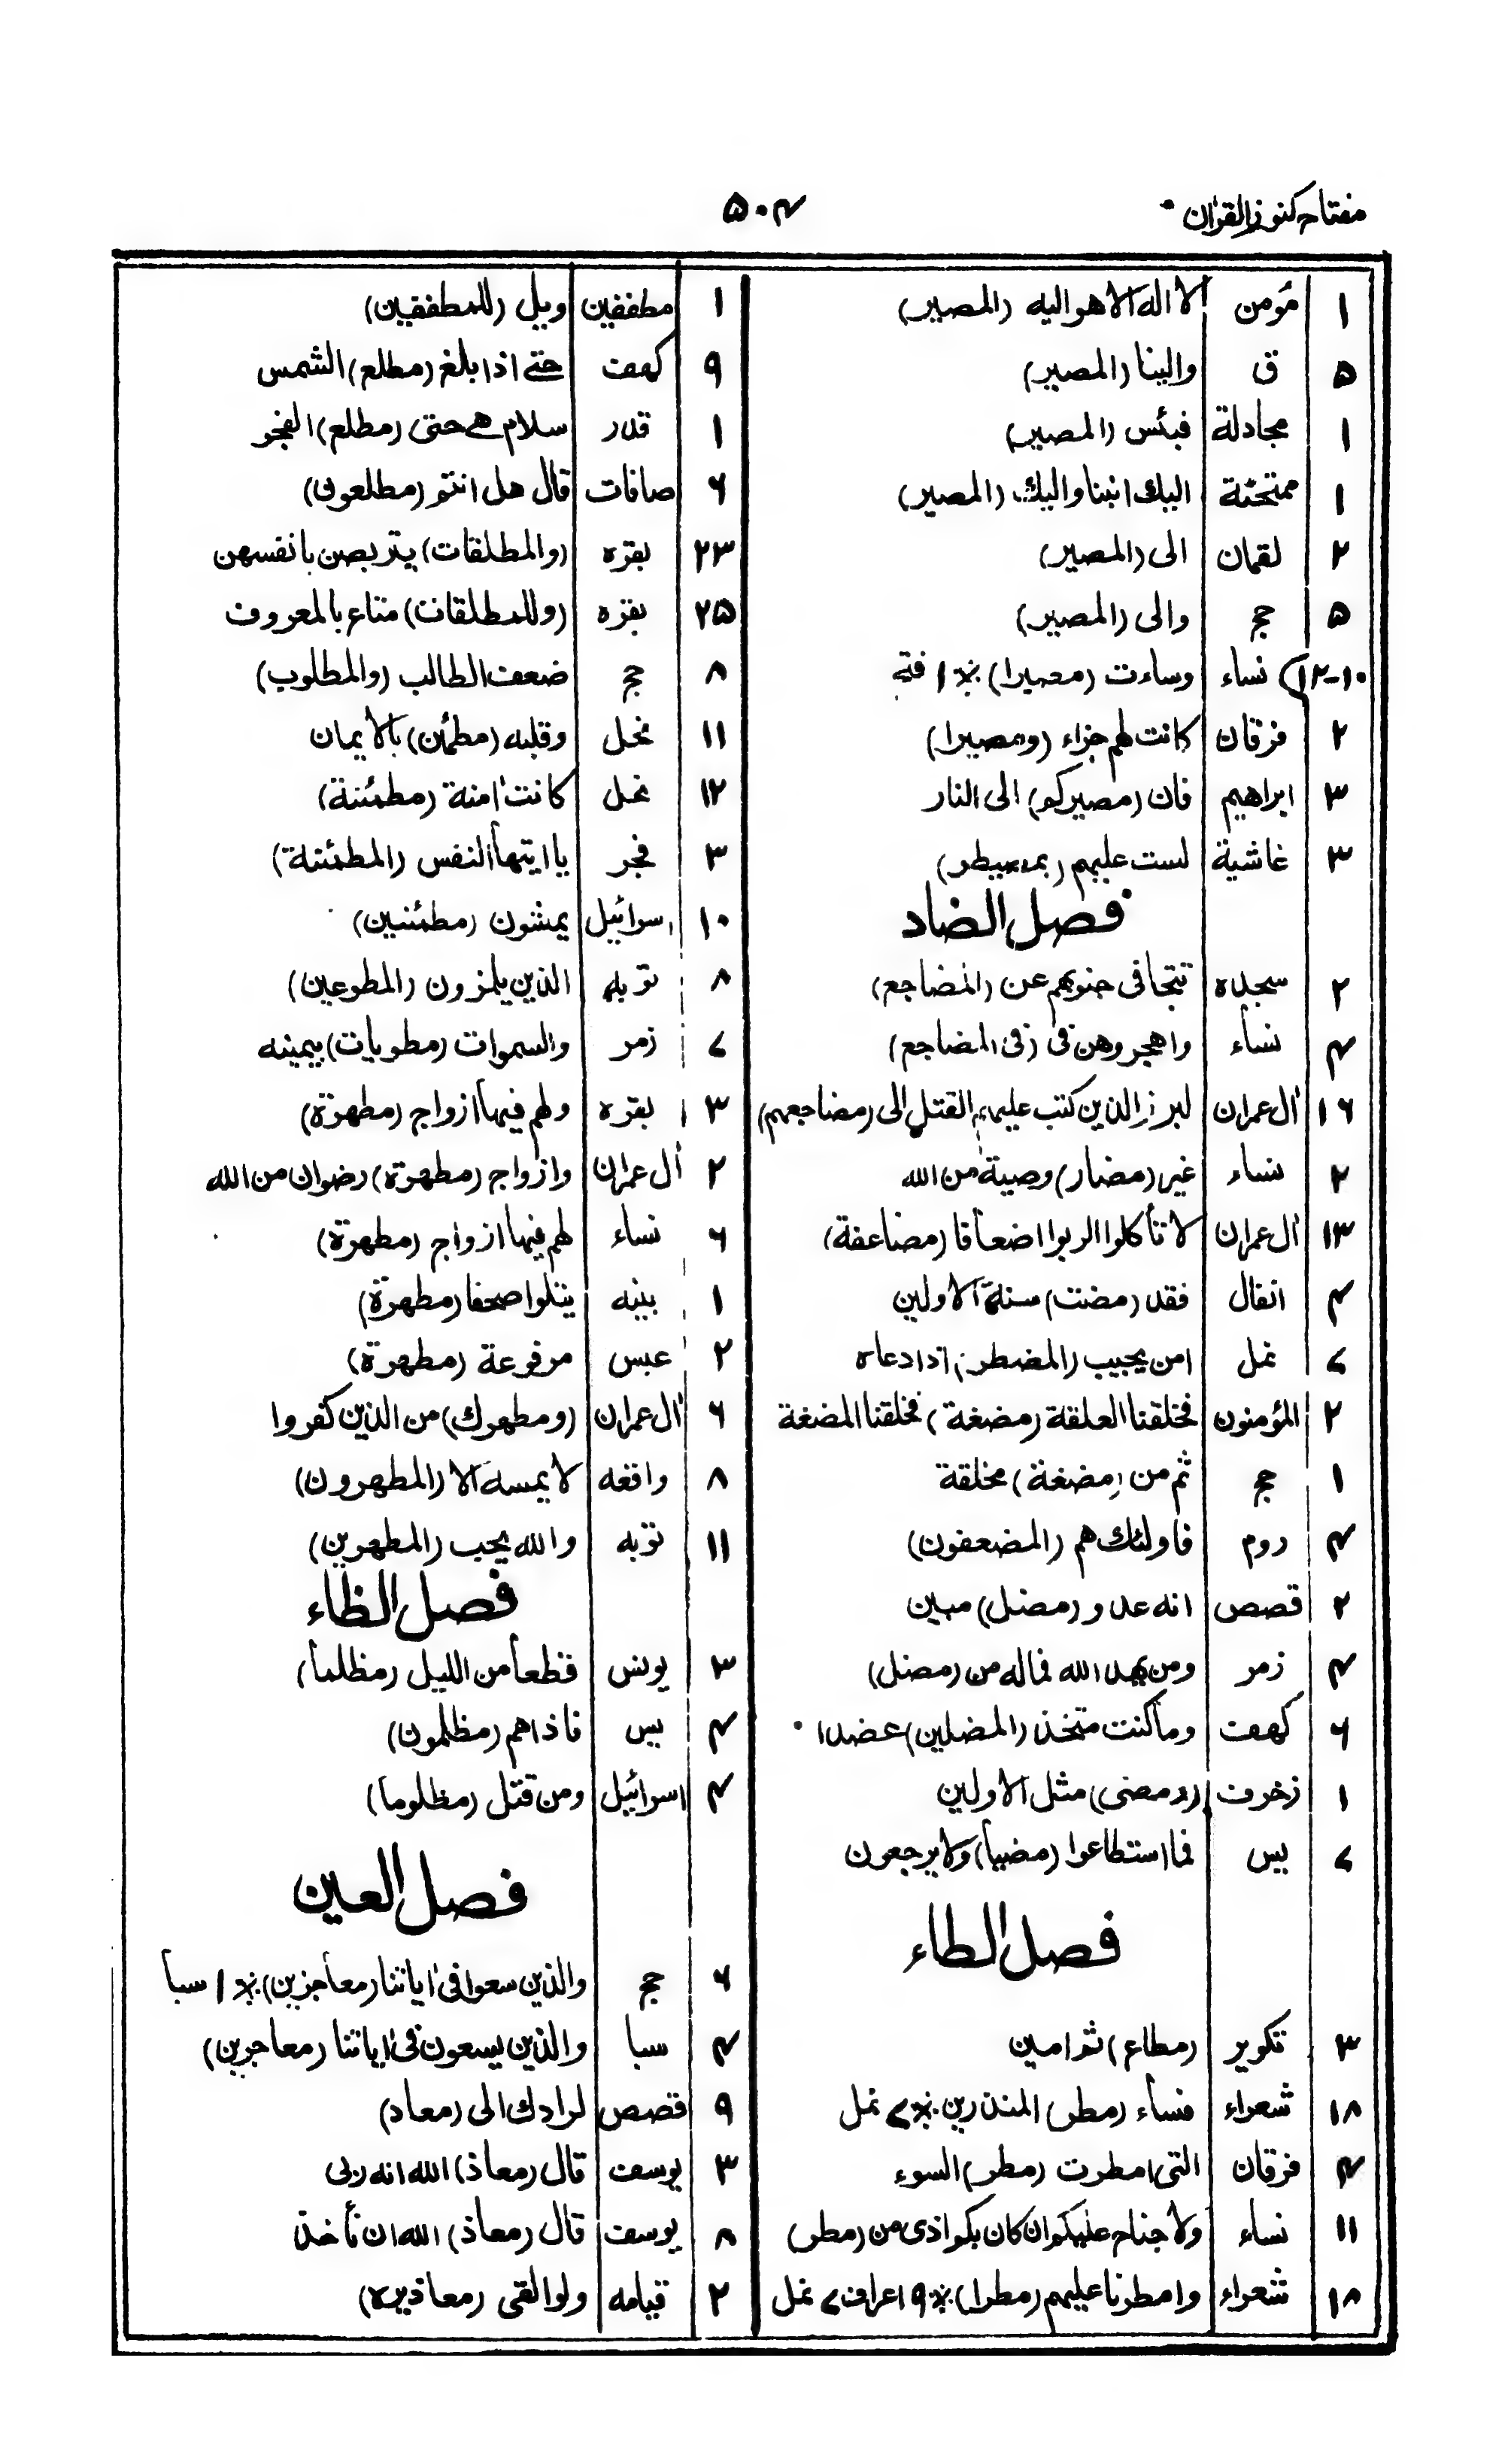 مفتاح كنوز القرآن ۵۰۴
۱ مؤمن لا اله الا هو اليه (المصير)
۵ ق والينا (المصير)
۱ مجادلة فبئس (المصير)
۱ ممتحنة اليك انبنا واليك (المصير)
۲ لقمان الى (المصير)
۵ حج والى (المصير)
۱۰-۱۲ نساء وساءت (مصيرا) ٪ ۱ فتح
۲ فرقان كانت لهم جزاء (ومصيرا)
۳ ابراهيم فان (مصيركم) الى النار
۳ غاشية لست عليهم (بمصيطر)
فصل الضاد
۲ سجده تتجافى جنوبهم عن (المضاجع)
۴ نساء واهجروهن فى (فى المضاجع)
۱۶ اٰل عمران لبرز الذين كتب عليهم القتل الى (مضاجعهم)
۲ نساء غير (مضار) وصية من الله
۱۳ اٰل عمران لا تأكلوا الربوا اضعافا (مضاعفة)
۴ انفال فقد (مضت) سنة الاولين
۷ نمل امن يجيب (المضطر) اذا دعاه
۲ المؤمنون فخلقنا العلقة (مضغة) فخلقنا المضغة
۱ حج ثم من (مضغة) مخلقة
۴ روم فاولئك هم (المضعفون)
۲ قصص انه عدو (مضل) مبين
۴ زمر ومن يهد الله فما له من (مضل)
۶ كهف وما كنت متخذ (المضلين) عضدا
۱ زخرف (ومضى) مثل الاولين
۷ يس فما استطاعوا (مضيا) ولا يرجعون
فصل الطاء
۳ تكوير (مطاع) ثم امين
۱۸ شعراء فساء (مطر) المنذرين ٪ ۷ نمل
۴ فرقان التى امطرت (مطر) السوء
۱۱ نساء ولا جناح عليكم ان كان بكم اذى من (مطر)
۱۸ شعراء وامطرنا عليهم (مطرا) ٪ ۹ اعراف ۷ نمل
۱ مطففين ويل (للمطففين)
۹ كهف حتى اذا بلغ (مطلع) الشمس
۱ قدر سلام هى حتى (مطلع) الفجر
۶ صافات قال هل انتم (مطلعون)
۲۳ بقره (والمطلقات) يتربصن بانفسهن
۲۵ بقره (وللمطلقات) متاع بالمعروف
۸ حج ضعف الطالب (والمطلوب)
۱۱ نحل وقلبه (مطمئن) بالايمان
۱۲ نحل كانت اٰمنة (مطمئنة)
۳ فجر يا ايتها النفس (المطمئنة)
۱۰ اسرائيل يمشون (مطمئنين)
۸ توبه الذين يلمزون (المطوعين)
۷ زمر والسموات (مطويات) بيمينه
۳ بقره ولهم فيها ازواج (مطهرة)
۲ اٰل عمران وازواج (مطهرة) رضوان من الله
۶ نساء لهم فيها ازواج (مطهرة)
۱ بينه يتلوا صحفا (مطهرة)
۲ عبس مرفوعة (مطهرة)
۶ اٰل عمران (ومطهرك) من الذين كفروا
۸ واقعه لا يمسه الا (المطهرون)
۱۱ توبه والله يحب (المطهرين)
فصل الظاء
۳ يونس قطعا من الليل (مظلما)
۴ يس فاذا هم (مظلمون)
۴ اسرائيل ومن قتل (مظلوما)
فصل العين
۶ حج والذين سعوا فى اٰياتنا (معاجزين) ٪ ۱ سبا
۴ سبا والذين يسعون فى اٰياتنا (معاجزين)
۹ قصص لرادك الى (معاد)
۳ يوسف قال (معاذ) الله انه ربى
۸ يوسف قال (معاذ) الله ان نأخذ
۲ قيامه ولو القى (معاذيره)